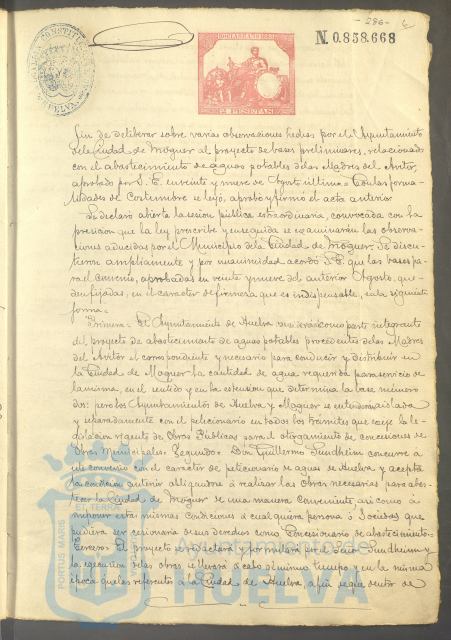 -286-
N. 0.858.668
2 PESETAS
fin de deliberar sobre varias observaciones hechas por el Ayuntamiento
de la Ciudad de Moguer al proyecto de bases preliminares, relacionado
con el abastecimiento de aguas potables de las Madres del Avitor,
aprobado por S. E. en veinte y nueve de Agosto último = Con las forma-
lidades de Costumbre se leyó, aprobó y firmó el acta anterior
Se declaró abierta la sesion pública extraordinaria, convocada con la
precision que la ley prescribe y enseguida se examinaron las observa-
ciones aducidas por el Municipio de la Ciudad de Moguer. Se discu-
tieron ampliamente y por unanimidad acordó S. E. que las bases pa-
ra el convenio, aprobadas en veinte y nueve del anterior Agosto, que-
den fijadas, en el carácter de firmeza que es indispensable, en la siguiente
forma =
Primera = El Ayuntamiento de Huelva considera como parte integrante
del proyecto de abastecimiento de aguas potables procedentes de las Madres
del Avitor el correspondiente y necesario para conducir y distribuir en
la Ciudad de Moguer la cantidad de agua requerida para servicio de
la misma, en el sentido y en la extension que determina la base número
dos: pero los Ayuntamientos de Huelva y Moguer se entenderán aislada
y separadamente con el peticionario en todos los trámites que exije la le-
gislacion vigente de Obras Públicas para el otorgamiento de concesiones de
Obras Municipales. Segundo = Don Guillermo Sundheim concurre a
este convenio con el carácter de peticionario de aguas de Huelva y acepta
la condicion anterior obligandose á realizar las Obras necesarias para abas-
tecer la Ciudad de Moguer de una manera Conveniente asi como á
imponer estas mismas condiciones á cualquiera persona ó Sociedad que
pudiera ser cesionaria de sus derechos como Concesionario de abastecimiento =
Tercero = El proyecto se redactará y formulará por el Señor Sundheim y
la ejecucion de las obras se llevará á cabo al mismo tiempo y en la misma
época que las referentes á la Ciudad de Huelva, á fin de que dentro de
PORTUS MARIS
ET TERRÆ
Ayuntamiento de
HUELVA